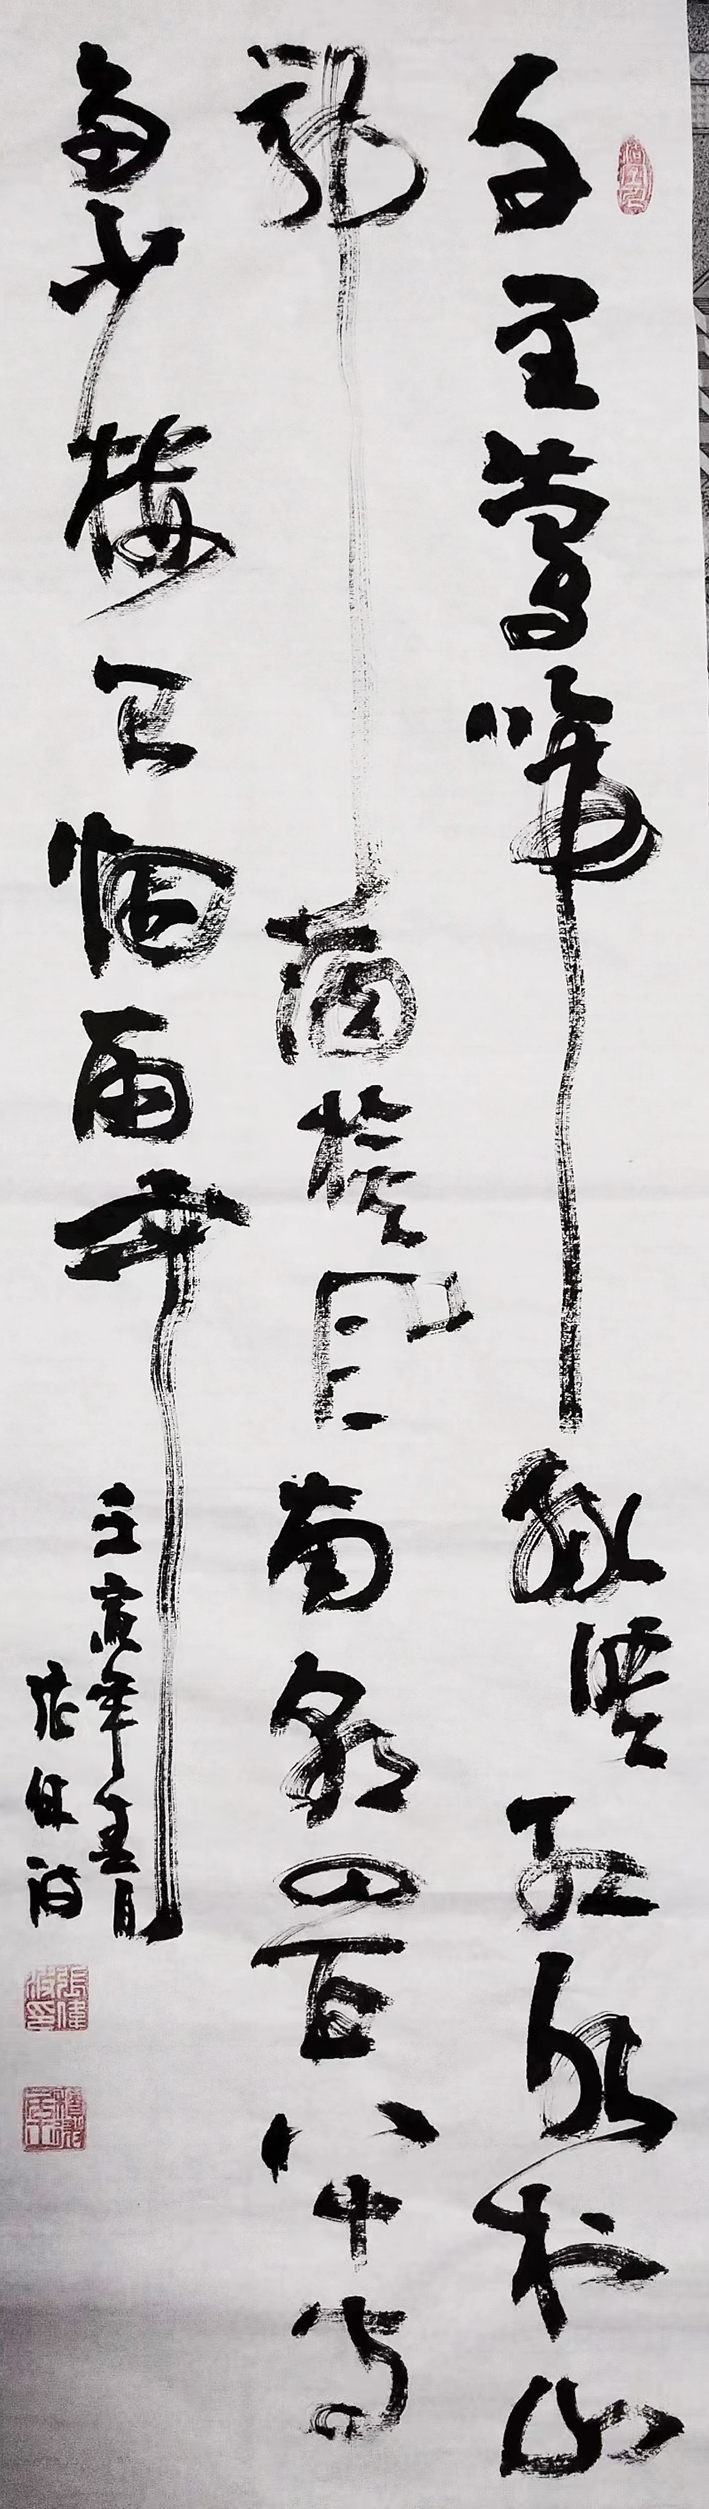 千里莺啼绿映红水村山
郭酒旗风南朝四百八十寺
多少楼台烟雨中
壬寅年春月
张伟波
张伟波印